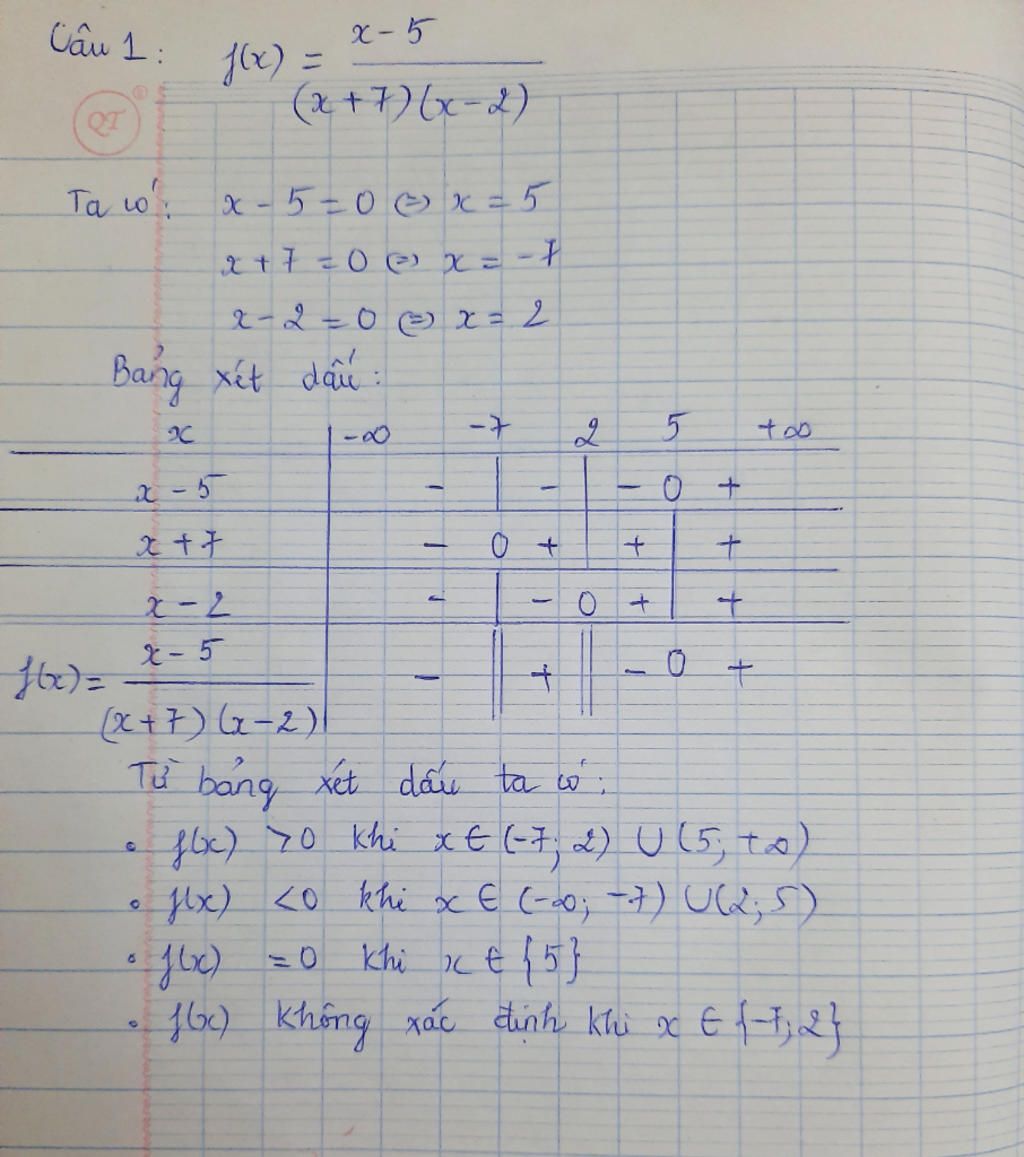 Câu 1: f(x) = x - 5
(x + 7)(x - 2)
QT
Ta có: x - 5 = 0 ⇔ x = 5
x + 7 = 0 ⇔ x = -7
x - 2 = 0 ⇔ x = 2
Bảng xét dấu:
x | -∞ -7 2 5 +∞
x - 5 | - | - | - 0 +
x + 7 | - 0 + | + | +
x - 2 | - | - 0 + | +
x - 5
f(x) = | - || + || - 0 +
(x + 7)(x - 2)
Từ bảng xét dấu ta có:
• f(x) > 0 khi x ∈ (-7; 2) ∪ (5; +∞)
• f(x) < 0 khi x ∈ (-∞; -7) ∪ (2; 5)
• f(x) = 0 khi x ∈ {5}
• f(x) không xác định khi x ∈ {-7; 2}